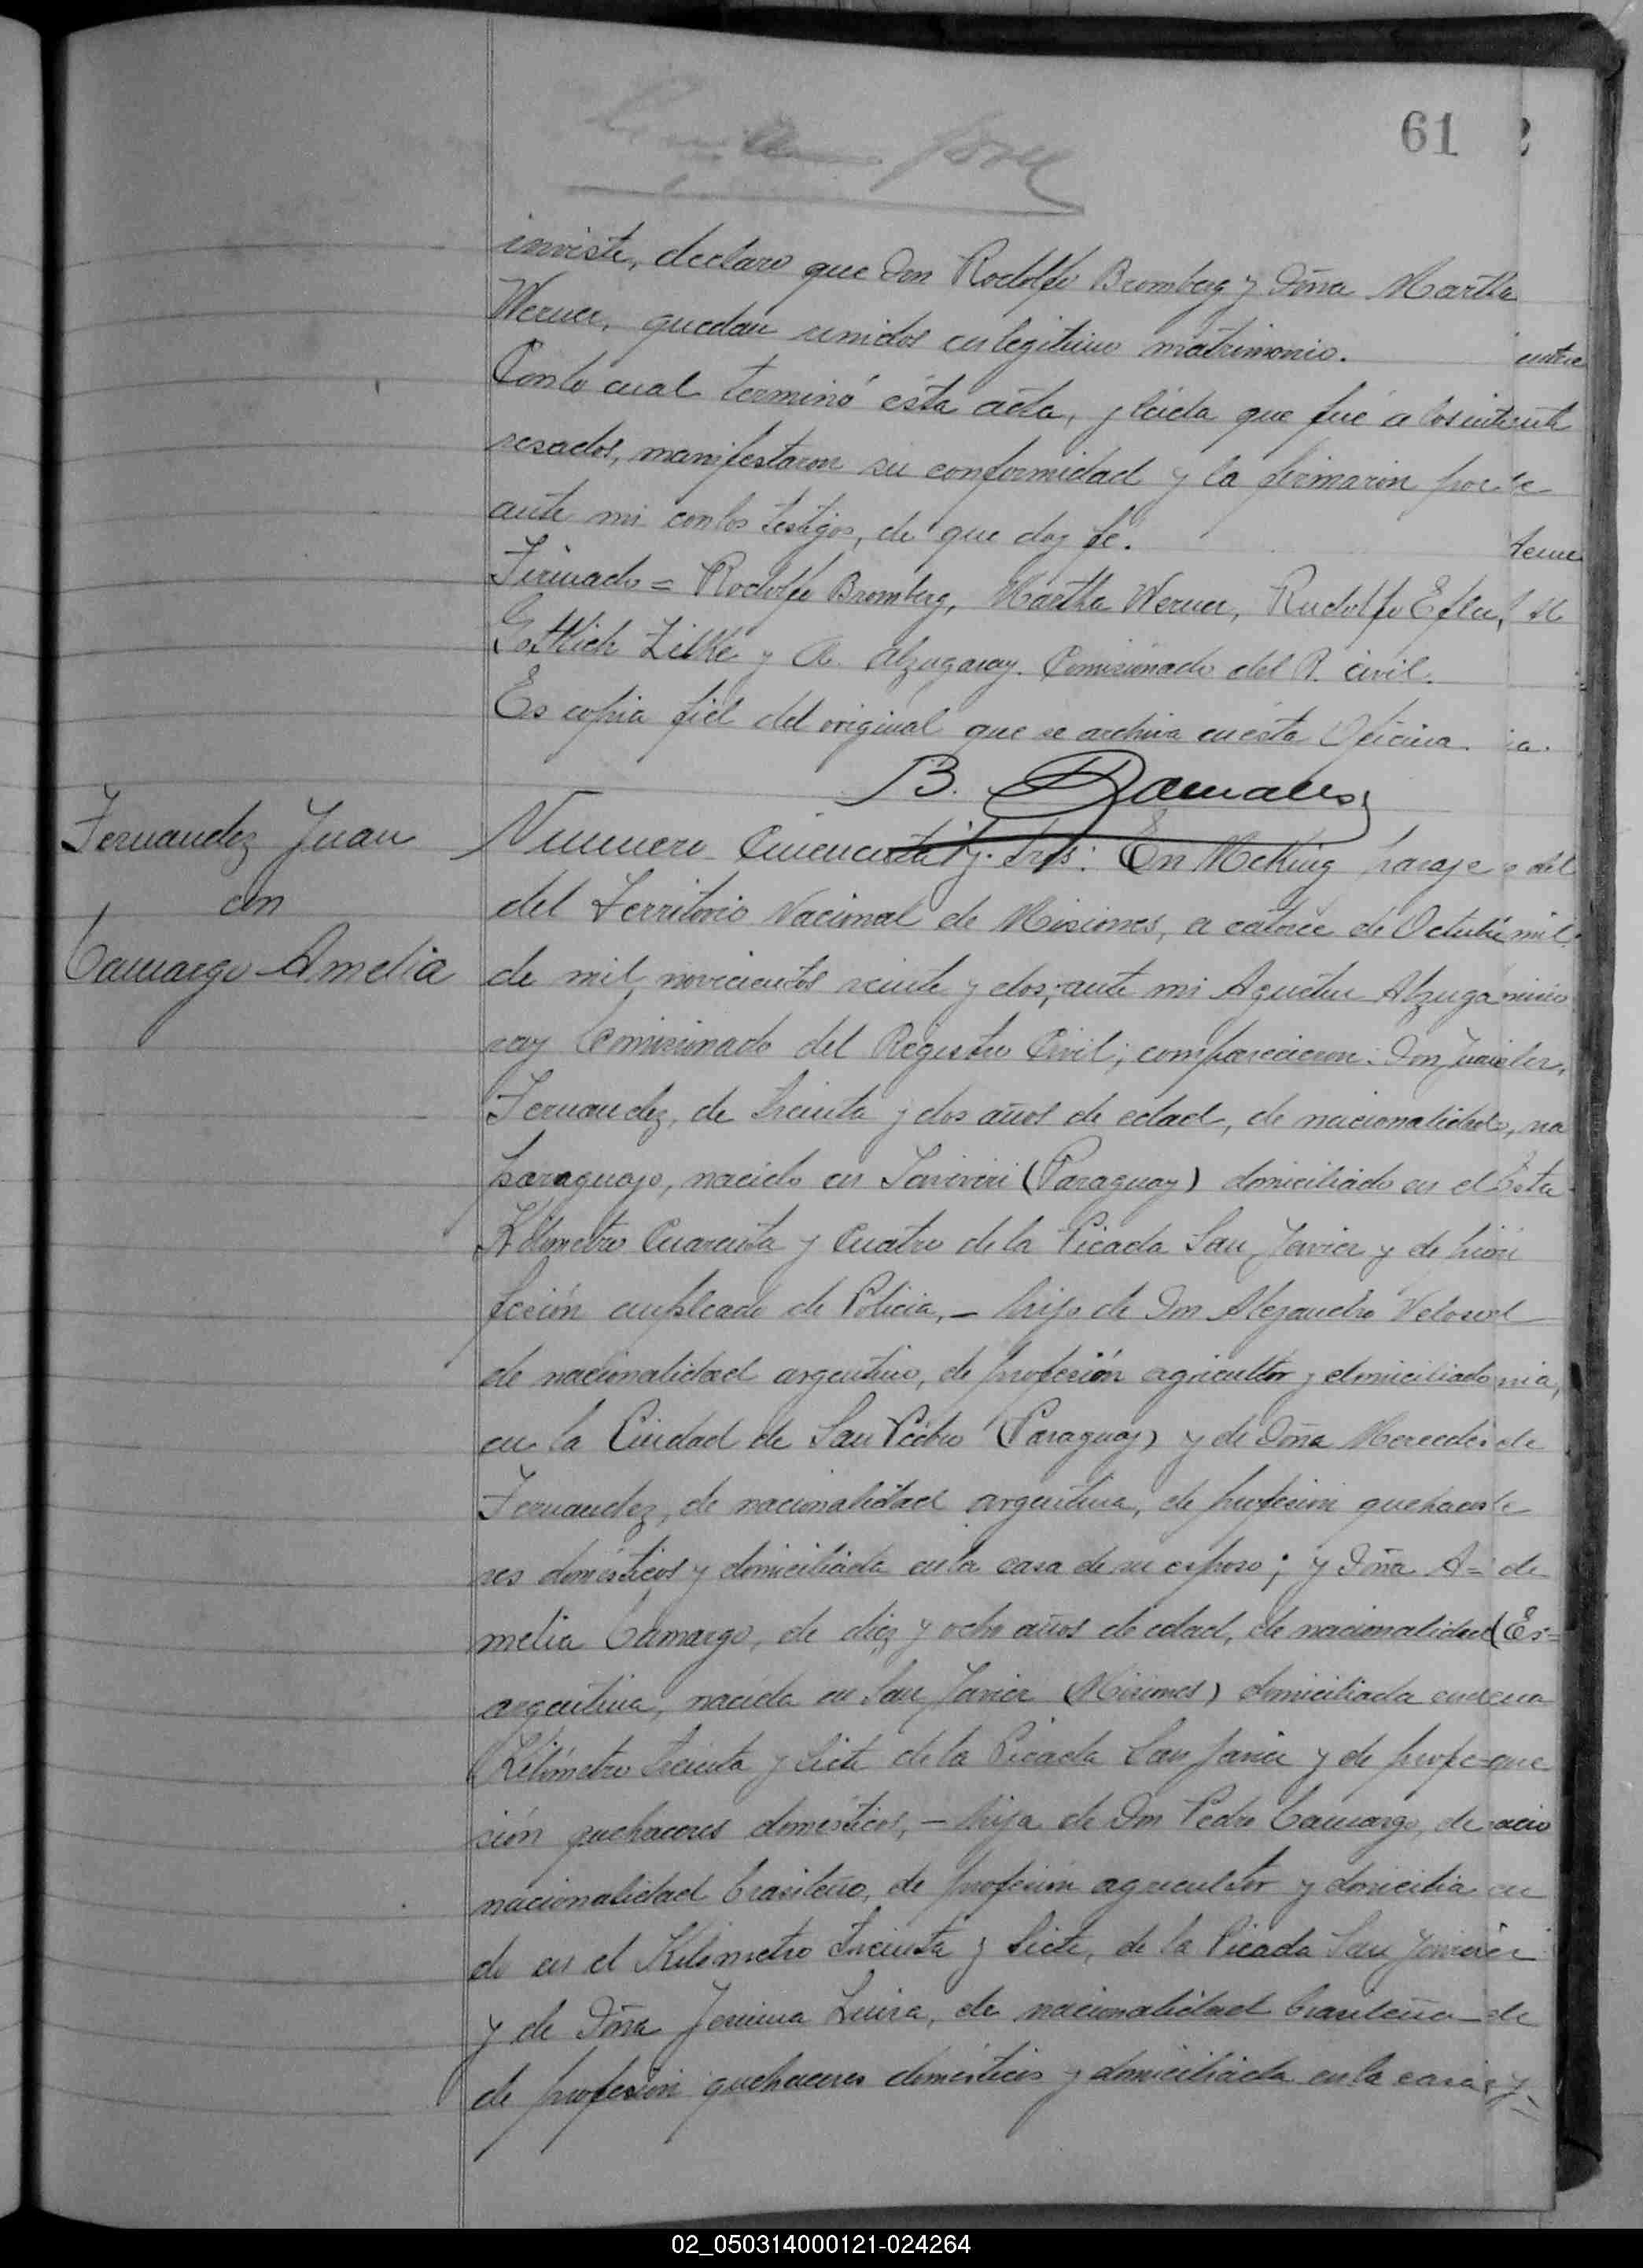 61
inviste, declaro que Don Rodolfo Bromberg y Doña Martha
Werner, quedan unidos en legitimo matrimonio.
Con lo cual terminó ésta acta, y leida que fué a los inte
resados, manifestaron su conformidad y la firmaron por
ante mi con los testigos, de que doy fé.
Firmado = Rodolfo Bromberg, Martha Werner, Rudolfo
Gottlieb Zilke y A. Alzugaray. Comisionado del R. civil.
Es copia fiel del original que se archiva en ésta Oficina.
B.
Fernandez Juan
con
Camargo Amelia
Numero Cincuenta y tres: En McKing paraje
del Territorio Nacional de Misiones, a catorce de Octubre
de mil novecientos veinte y dos, ante mi Agustin Alzuga
ray Comisionado del Registro Civil; comparecieron: Don Juan
Fernandez, de treinta y dos años de edad, de nacionalidad
paraguayo, nacido en (Paraguay) domiciliado en el
Kilometro Cuarenta y Cuatro de la Picada San Javier y de
fesión empleado de Policia, – hijo de Don Alejandro
de nacionalidad argentino, de profesión agricultor y domiciliado
en la Ciudad de San Pedro (Paraguay) y de Doña Mercedes
Fernandez, de nacionalidad argentina, de profesion quehace
res domésticos y domiciliada en la casa de su esposo; y Doña A=
melia Camargo, de diez y ocho años de edad, de nacionalidad
argentina, nacida en San Javier (Misiones) domiciliada en
Kilómetro treinta y siete de la Picada San Javier y de profe
sión quehaceres domésticos, – hija de Don Pedro Camargo, de
nacionalidad brasileño, de profesion agricultor y domicilia
do en el Kilometro treinta y siete, de la Picada San Javier
y de Doña Luisa, de nacionalidad brasileña
de profesion quehaceres domésticos y domiciliada en la casa
02_050314000121-024264